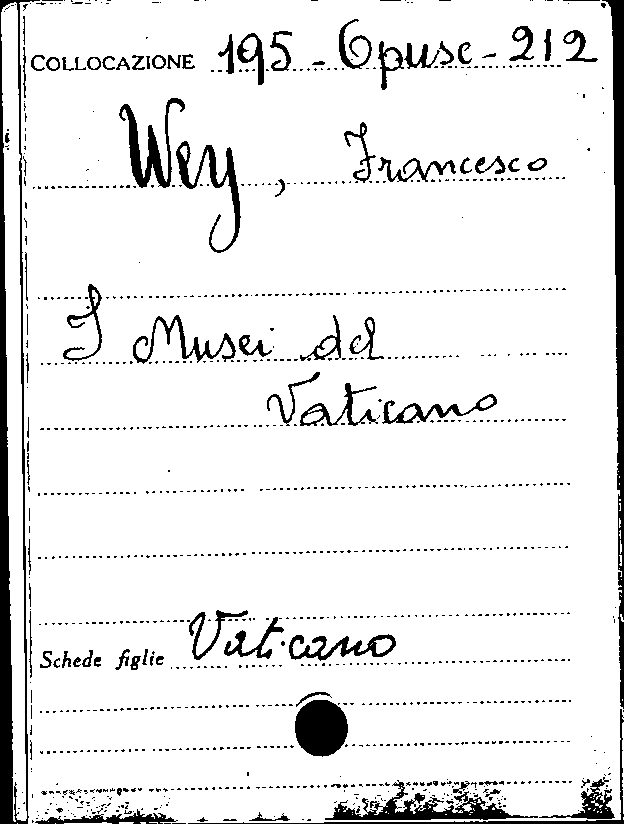 COLLOCAZIONE 195 - Opusc - 212
Wey, Francesco
I Musei del
Vaticano
Schede figlie Vaticano